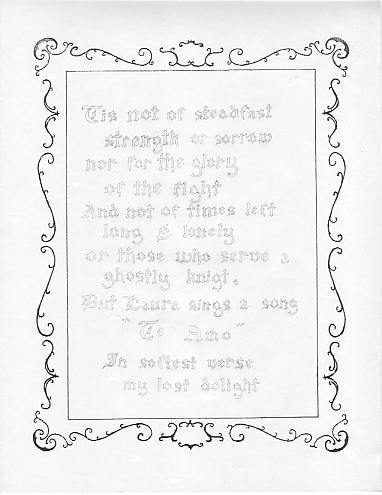 Tis not of steadfast
strength or sorrow
nor for the glory
of the fight
And not of times left
long & lonely
or those who serve a
ghostly knigt.
But Laura sings a song
"Te Amo"
In softest verse
my lost delight